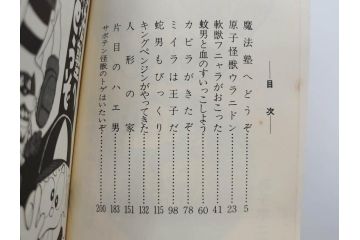 目次
魔法塾へどうぞ 5
原子怪獣ウラニドン 23
軟獣フニャラがおこった 41
蚊男と血のすいっこしよう 60
カビラがきたぞ 78
ミイラは王子だ 98
蛇男もびっくり 115
キングペンジンがやってきた 132
人形の家 151
片目のハエ男 183
サボテン怪獣のトゲはいたいぞ 200